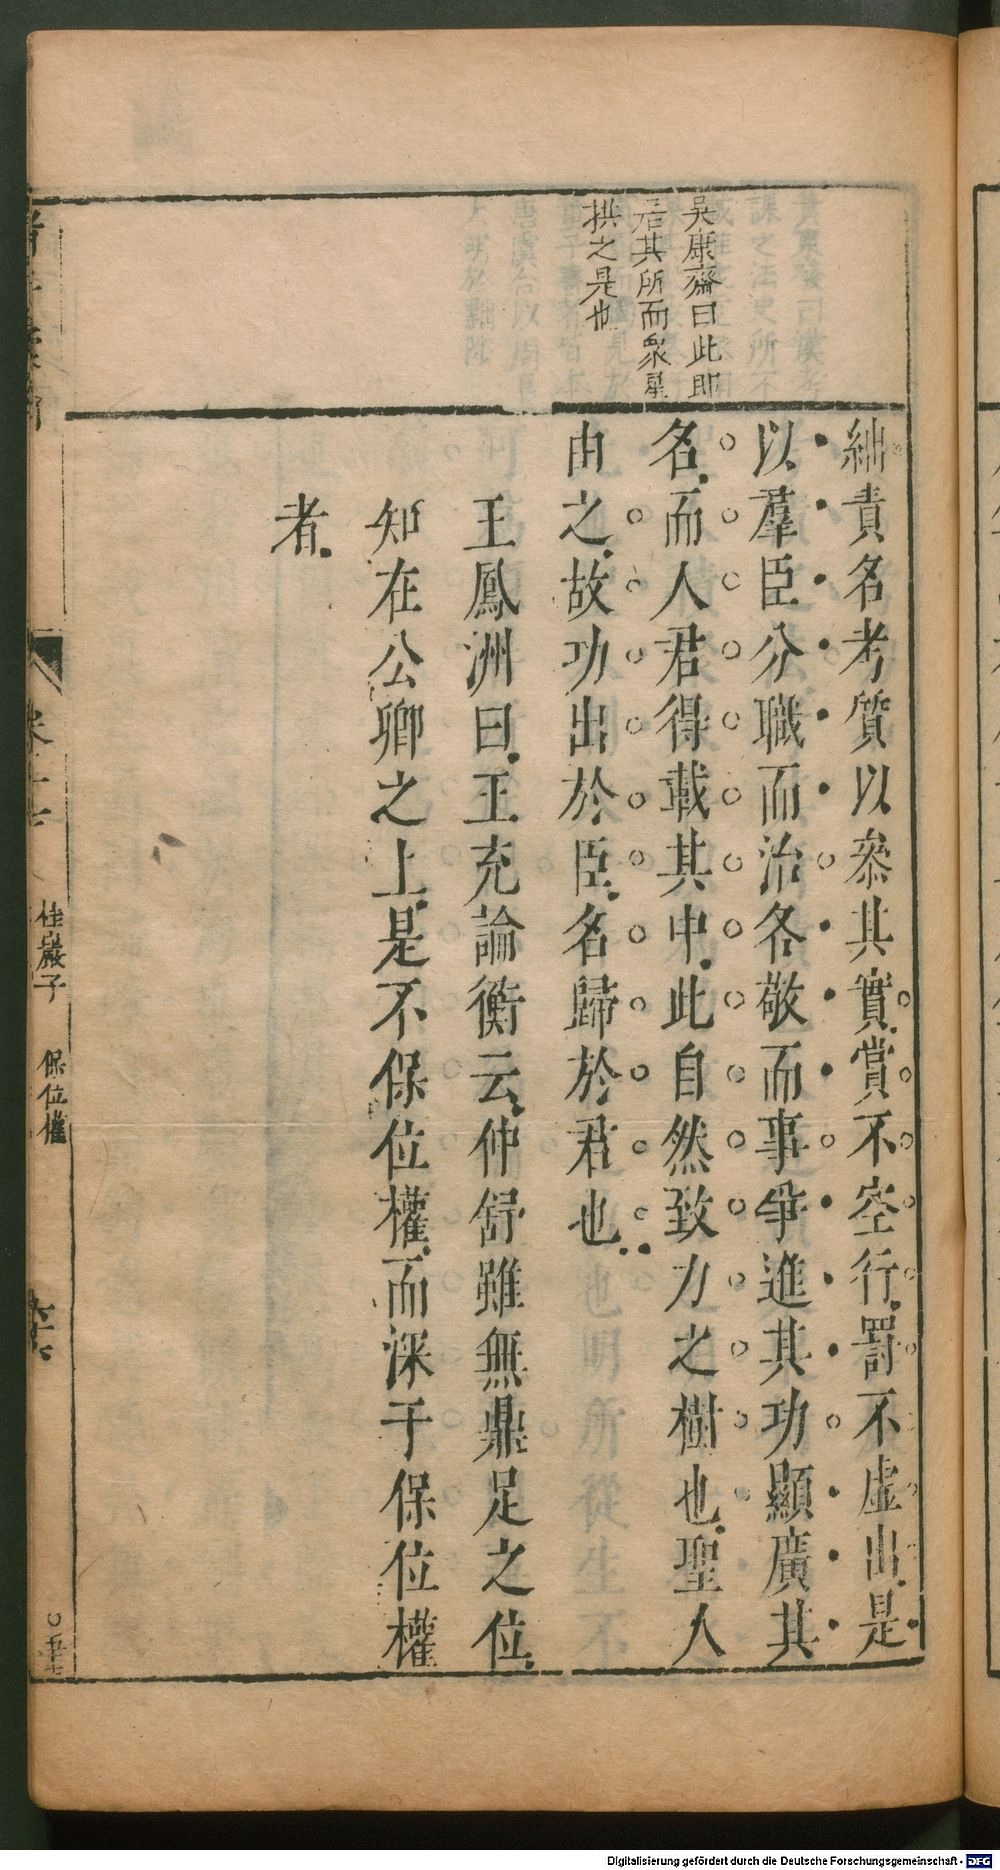 吳康齋曰此即
居其所而眾星
拱之是也
絀責名考質以叅其實賞不空行罰不虛出是
以羣臣分職而治各敬而事爭進其功顯廣其
名而人君得載其中此自然致力之術也聖人
由之故功出於臣名歸於君也
王鳳洲曰王充論衡云仲舒雖無鼎足之位
知在公卿之上是不保位權而深于保位權
者
諸子彙函
桂巖子 保位權
Digitalisierung gefördert durch die Deutsche Forschungsgemeinschaft - DFG